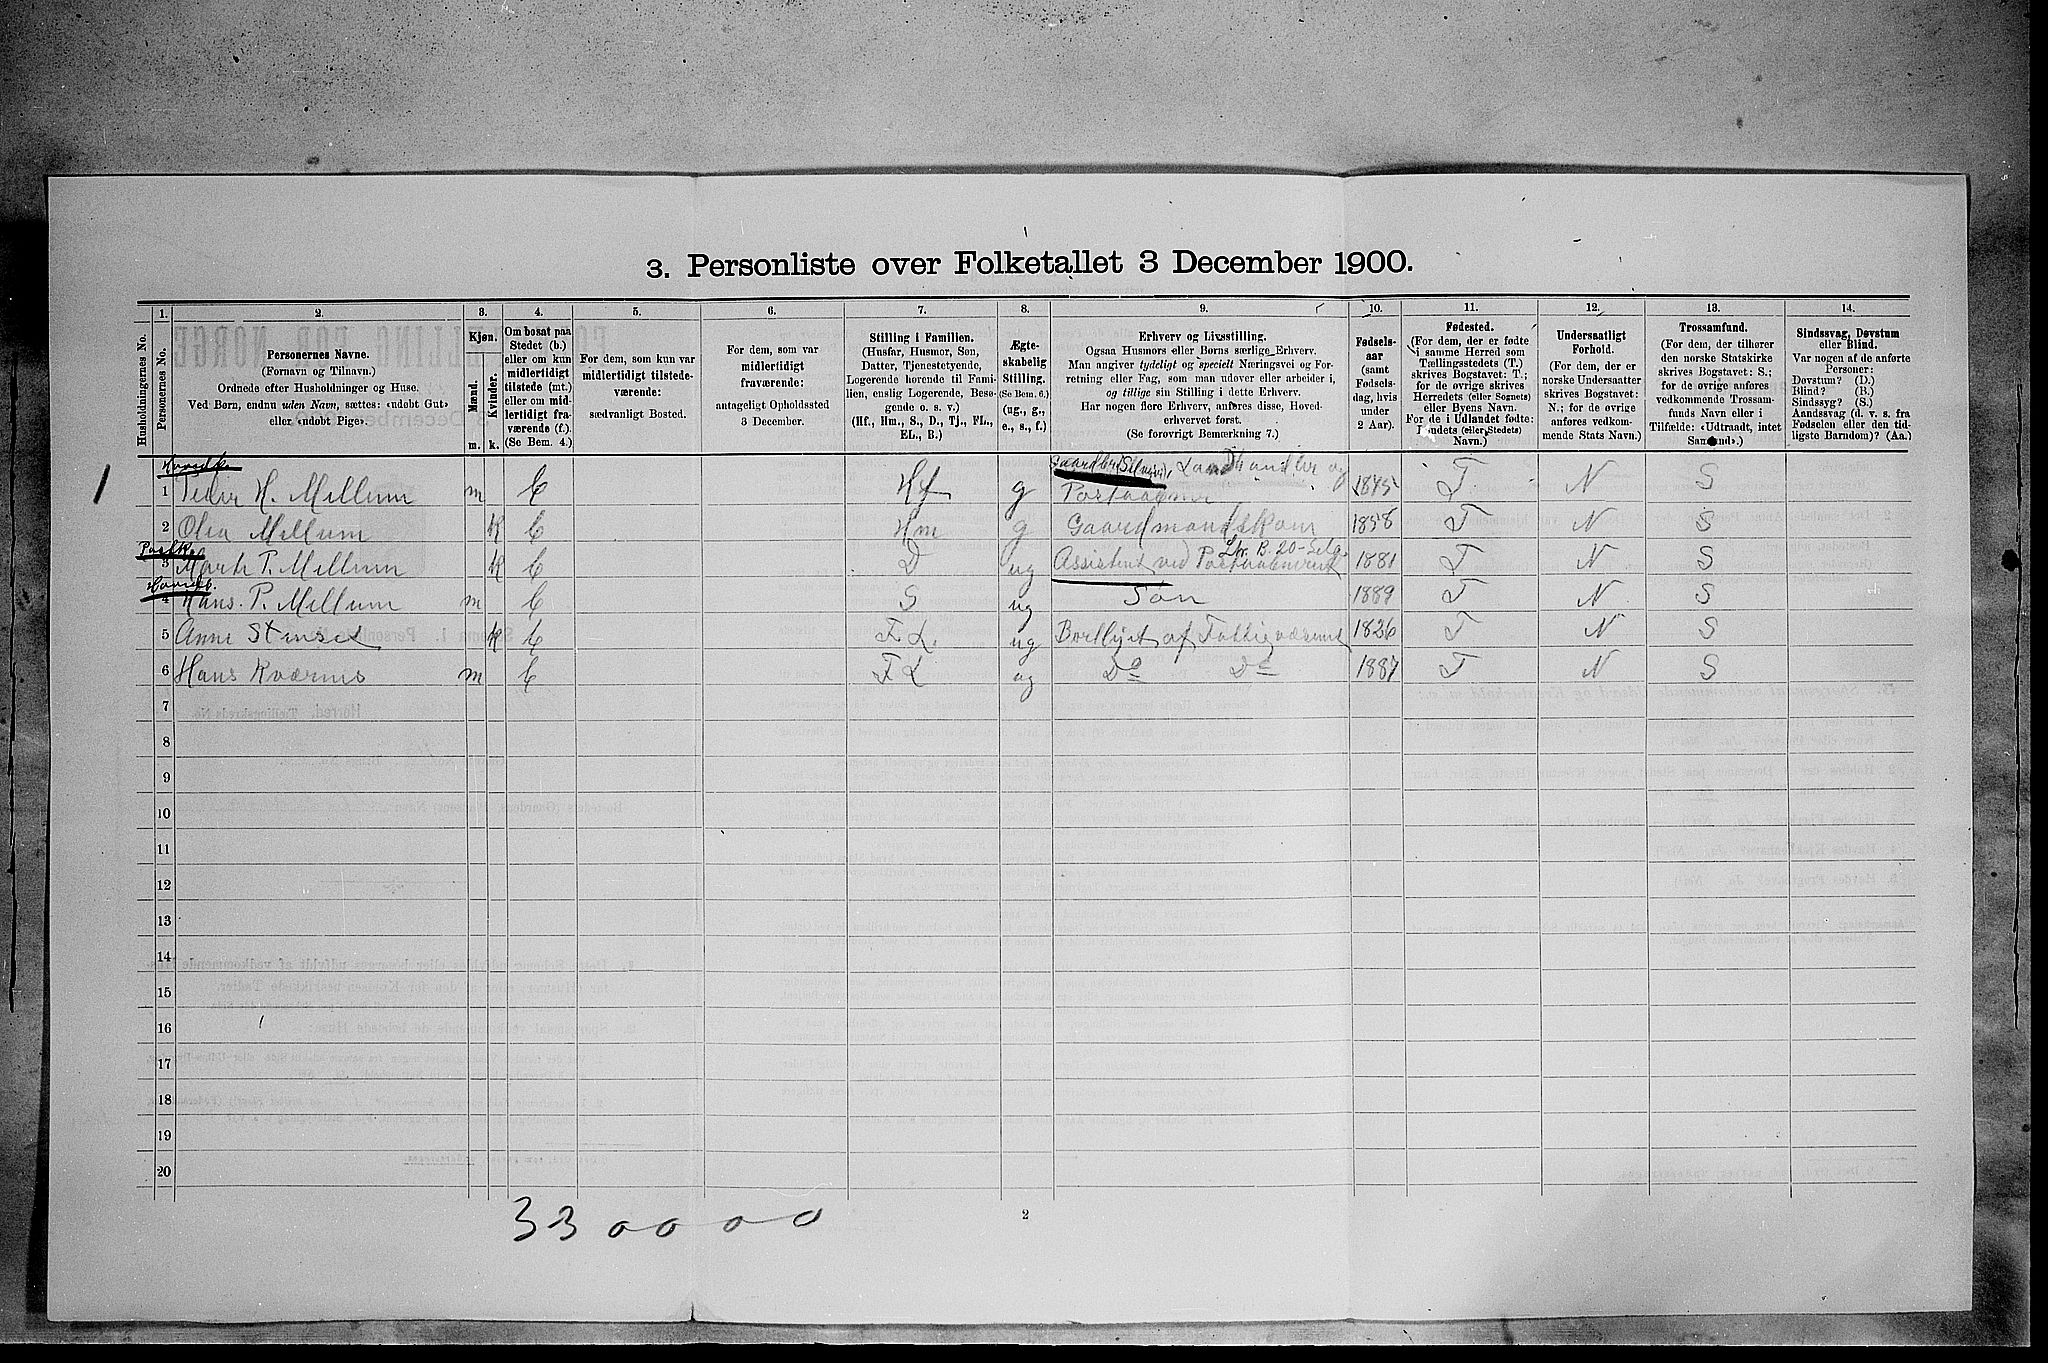 3. Personliste over Folketallet 3 December 1900.
1. 2. 3. 4. 5. 6. 7. 8. 9. 10. 11. 12. 13. 14.
Husholdningernes No.
Personernes No.
Personernes Navne.
(Fornavn og Tilnavn.)
Ordnede efter Husholdninger og Huse.
Ved Børn, endnu uden Navn, sættes: «udøbt Gut»
eller «udøbt Pige».
Kjøn.
Mænd.
Kvinder.
m. k.
Om bosat paa
Stedet (b.)
eller om kun
midlertidigt
tilstede (mt.)
eller om mid-
lertidigt fra-
værende (f.).
(Se Bem. 4.)
For dem, som kun var
midlertidigt tilstede-
værende:
sædvanligt Bosted.
For dem, som var
midlertidigt
fraværende:
antageligt Opholdssted
3 December.
Stilling i Familien.
(Husfar, Husmor, Søn,
Datter, Tjenestetyende,
Logerende hørende til Fami-
lien, enslig Logerende, Besø-
gende o. s. v.)
(Hf., Hm., S., D., Tj., FL.,
EL., B.)
Ægte-
skabelig
Stilling.
(Se Bem. 6.)
(ug., g.,
e., s., f.)
Erhverv og Livsstilling.
Ogsaa Husmors eller Børns særlige Erhverv.
Man angiver tydeligt og specielt Næringsvei og For-
retning eller Fag, som man udøver eller arbeider i,
og tillige sin Stilling i dette Erhverv.
Har nogen flere Erhverv, anføres disse, Hoved-
erhvervet først.
(Se forøvrigt Bemærkning 7.)
Fødsels-
aar
(samt
Fødsels-
dag, hvis
under
2 Aar).
Fødested.
(For dem, der er fødte
i samme Herred som
Tællingsstedets (T.)
skrives Bogstavet: T.;
for de øvrige skrives
Herredets (eller Sognets)
eller Byens Navn.
For de i Udlandet fødte:
Landets (eller Stedets)
Navn.)
Undersaatligt
Forhold.
(For dem, der er
norske Undersaatter
skrives Bogstavet:
N.; for de øvrige
anføres vedkom-
mende Stats Navn.)
Trossamfund.
(For dem, der tilhører
den norske Statskirke
skrives Bogstavet: S.;
for de øvrige anføres
vedkommende Trossam-
funds Navn eller i
Tilfælde: «Udtraadt, intet
Samfund».)
Sindssvag, Døvstum
eller Blind.
Var nogen af de anførte
Personer:
Døvstum? (D.)
Blind? (B.)
Sindssyg? (S.)
Aandssvag (d. v. s. fra
Fødselen eller den tid-
ligste Barndom)? (Aa.)
Hovedk.
Landhandler og
1 1 Peder H. Mellum m b Hf g Postaabner 1845 T N S
2 Olea Mellum k b Hm g Gaardmandskone 1858 T N S
Postk. Ltr. B. 20-
3 Marte P. Mellum k b D ug Assistent ved Postaabneriet 1881 T N S
Hovedb.
4 Hans. P. Mellum m b S ug Søn 1889 T N S
5 Anne Stenset k b FL. ug Bortlyst af Fattigvæsenet 1826 T N S
6 Hans Kværnes m b FL ug Do Do 1887 T N S
7
8
9
10
11
12
13
14
15
16
17
18
19
20
33 00 00
2